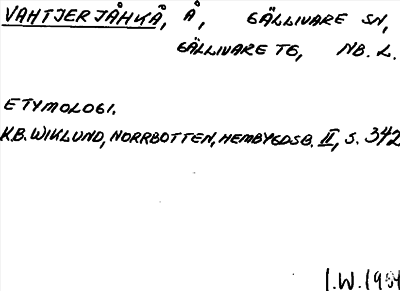 VAHTJERJÅHKÅ, Å, GÄLLIVARE SN,
GÄLLIVARE TG, NB. L.
ETYMOLOGI.
K.B. WIKLUND, NORRBOTTEN, HEMBYGDSB. II, S. 342
I.W.